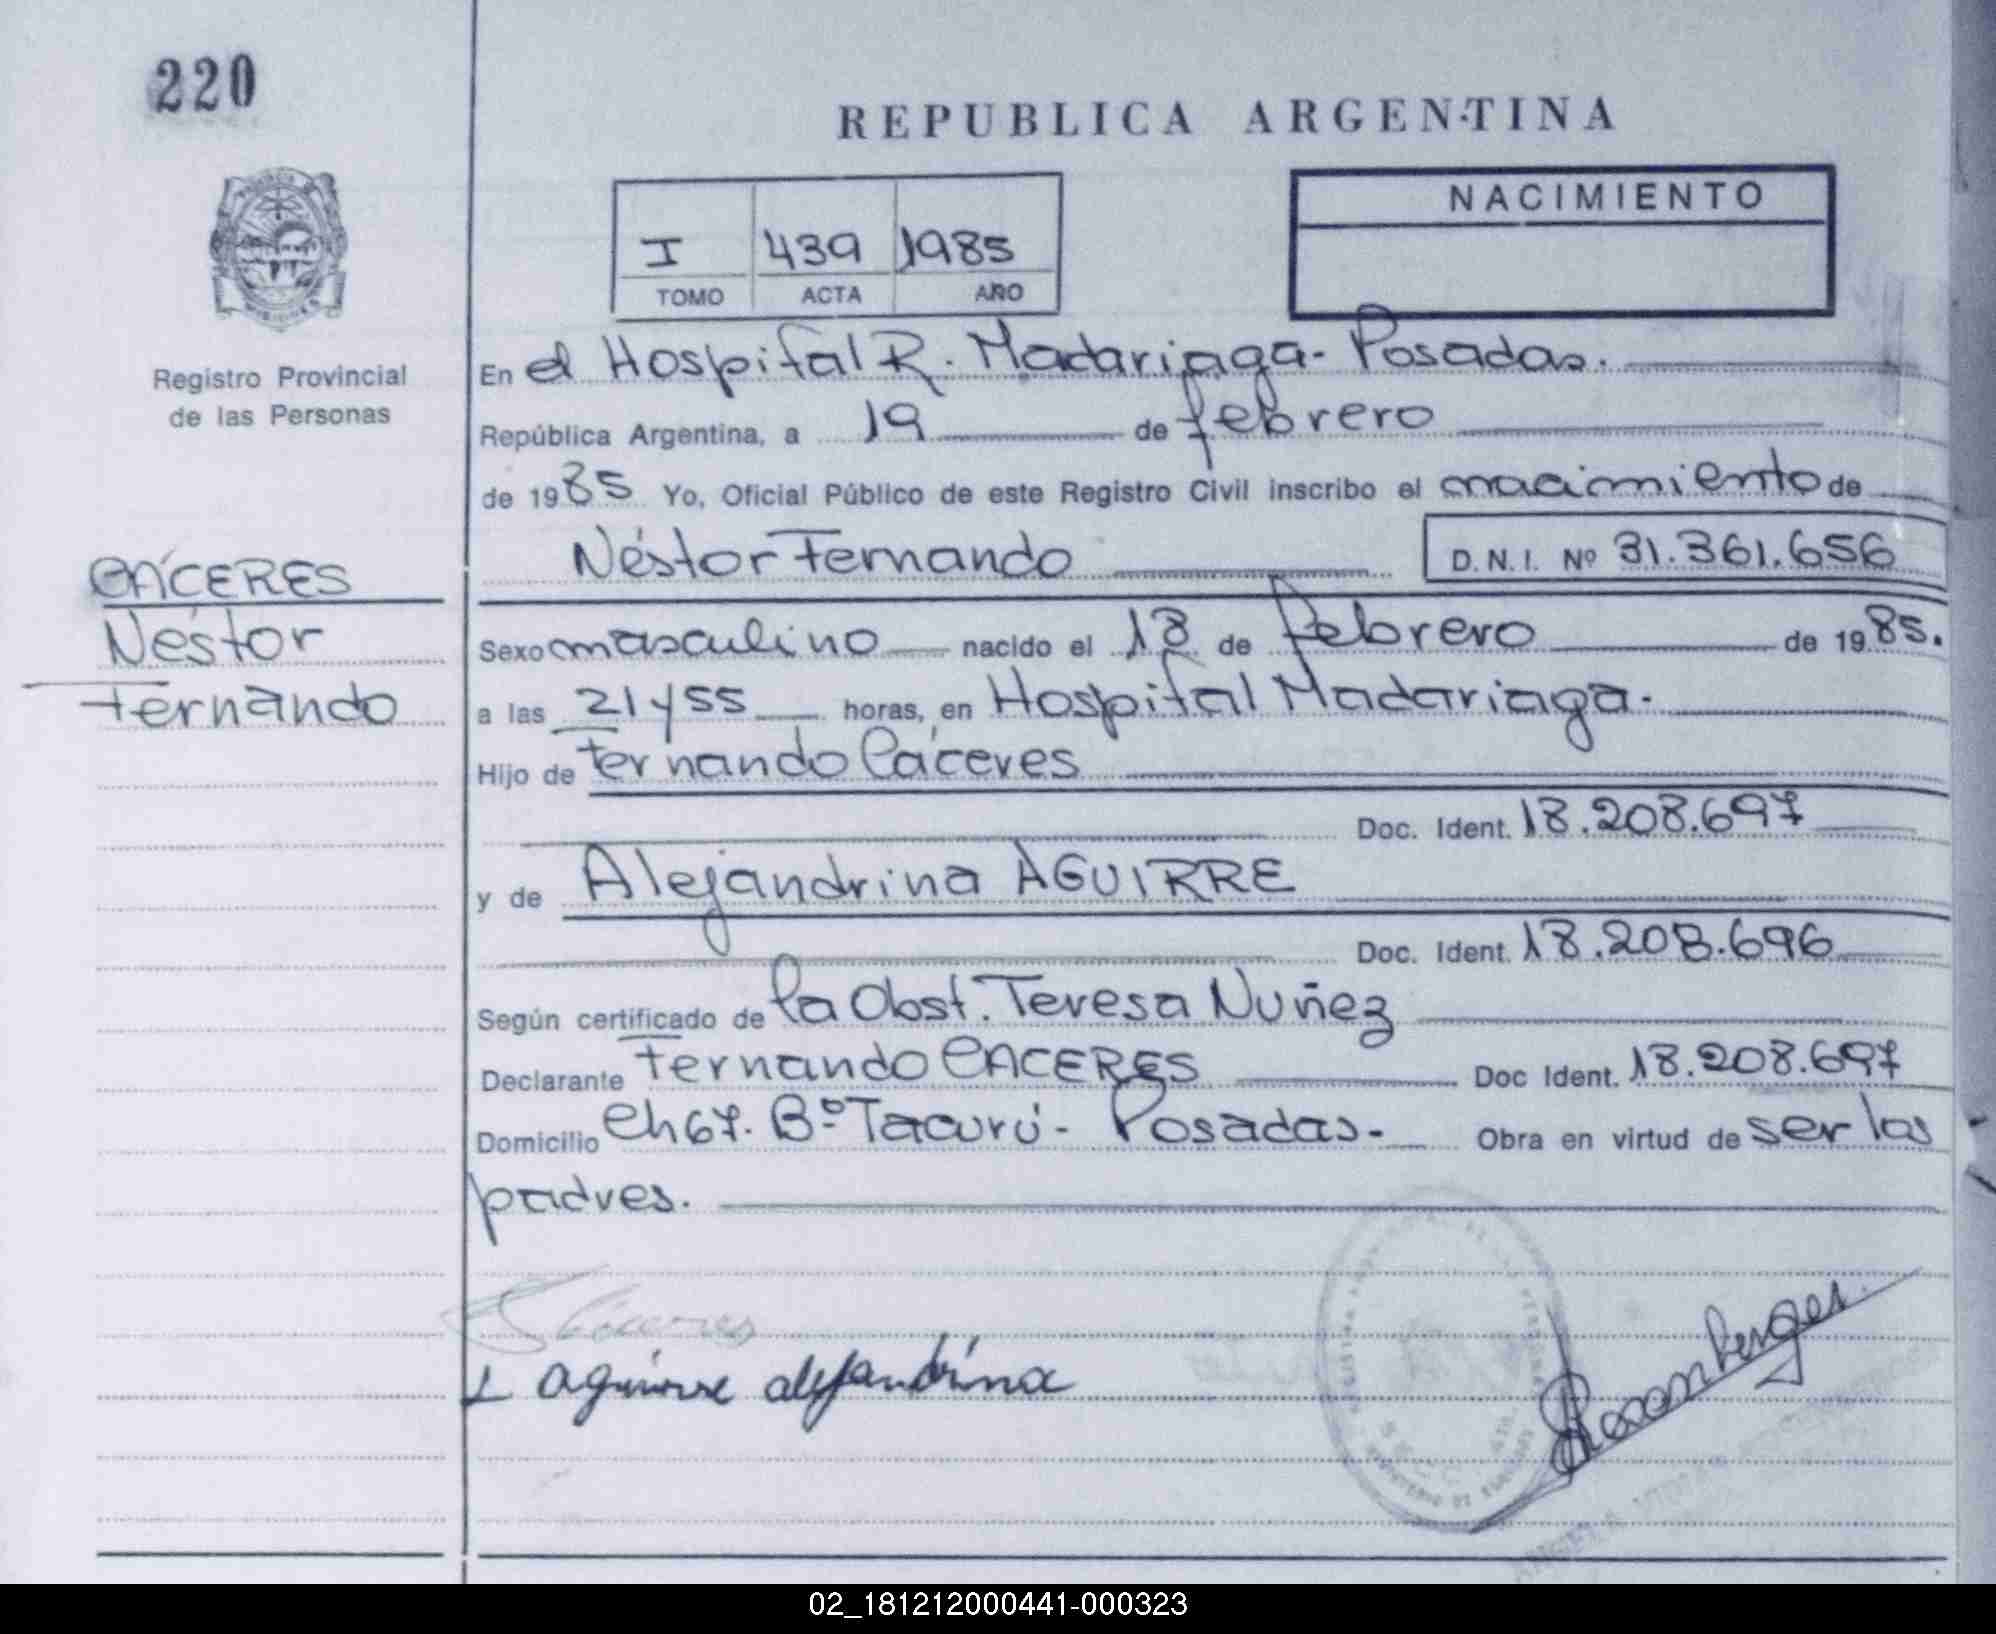 220
REPUBLICA ARGENTINA
I 439 1985
TOMO ACTA AÑO
NACIMIENTO
Registro Provincial
de las Personas
En el Hospital R. Madariaga - Posadas.
República Argentina, a 19 de febrero
de 1985 Yo, Oficial Público de este Registro Civil inscribo el nacimiento de
Néstor Fernando D.N.I. Nº 31.361.656
CÁCERES
Néstor
Fernando
Sexo masculino nacido el 18 de febrero de 1985.
a las 21 y 55 horas, en Hospital Madariaga.
Hijo de Fernando Cáceres
Doc. Ident. 18.208.697
y de Alejandrina AGUIRRE
Doc. Ident. 18.208.696
Según certificado de la Obst. Teresa Nuñez
Declarante Fernando CACERES Doc Ident. 18.208.697
Domicilio Ch 67. Bº Tacurú - Posadas - Obra en virtud de ser los
padres.
Cáceres
aguirre alejandrina
02_181212000441-000323